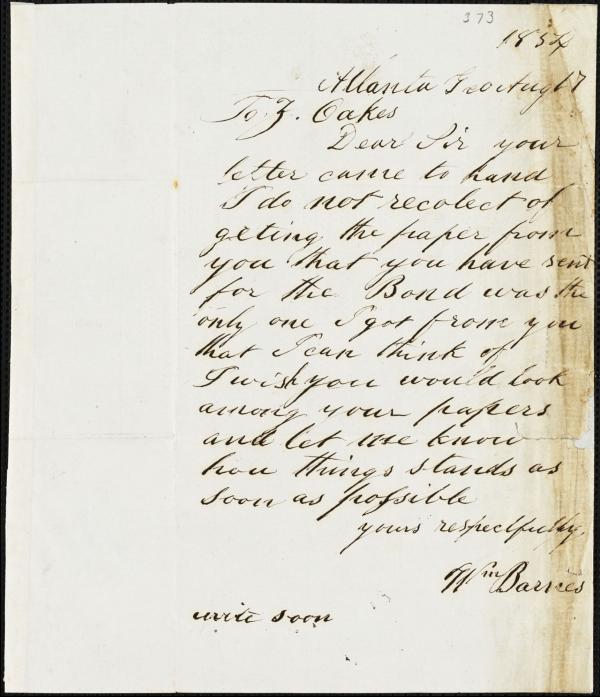 373
1854
Atlanta Geo Aug 17
To Z. Oakes
Dear Sir your
letter came to hand
I do not recolect of
geting the paper from
you that you have sent
for the Bond was the
only one I got from you
that I can think of
I wish you would look
among your papers
and let me know
how things stands as
soon as possible
yours respectfully,
Wm Barnes
write soon